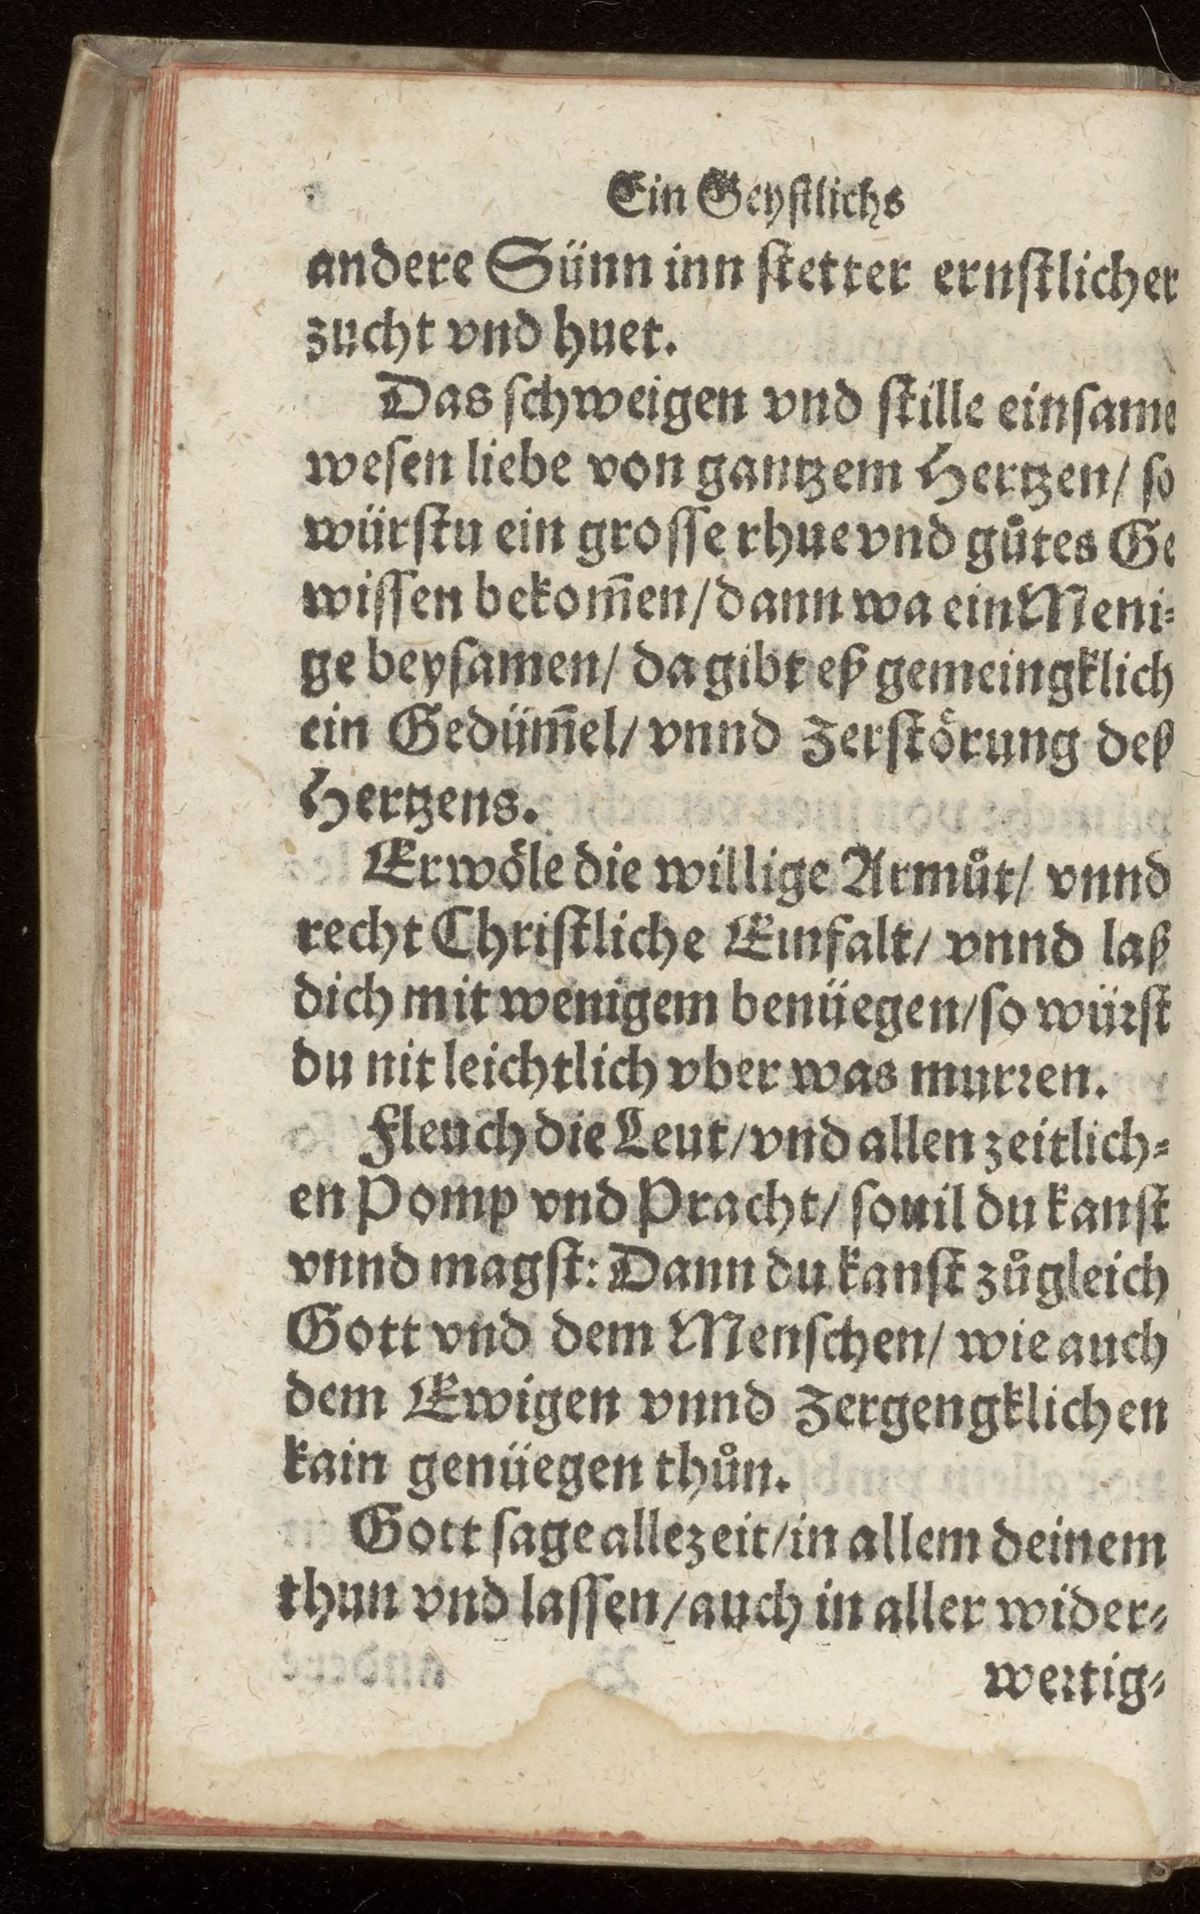 Ein Geyſtlichs
andere Sünn inn ſtetter ernſtlicher
zucht vnd huet.
Das ſchweigen vnd ſtille einſame
weſen liebe von gantzem Hertzen/ ſo
würſtu ein groſſe rhue vnd gůtes Ge
wiſſen bekom̅en/ dann wa ein Meni⸗
ge beyſamen/ da gibt eß gemeingklich
ein Gedüm̅el/ vnnd Zerſtoͤrung deß
Hertzens.
Erwoͤle die willige Armůt/ vnnd
recht Chriſtliche Einfalt/ vnnd laß
dich mit wenigem benüegen/ ſo würſt
du nit leichtlich vber was murꝛen.
Fleuch die Leut/ vnd allen zeitlich⸗
en Pomp vnd Pracht/ ſouil du kanſt
vnnd magſt: Dann du kanſt zůgleich
Gott vnd dem Menſchen/ wie auch
dem Ewigen vnnd Zergengklichen
kain genüegen thůn.
Gott ſage allezeit/ in allem deinem
thun vnd laſſen/ auch in aller wider⸗
weꝛtig⸗